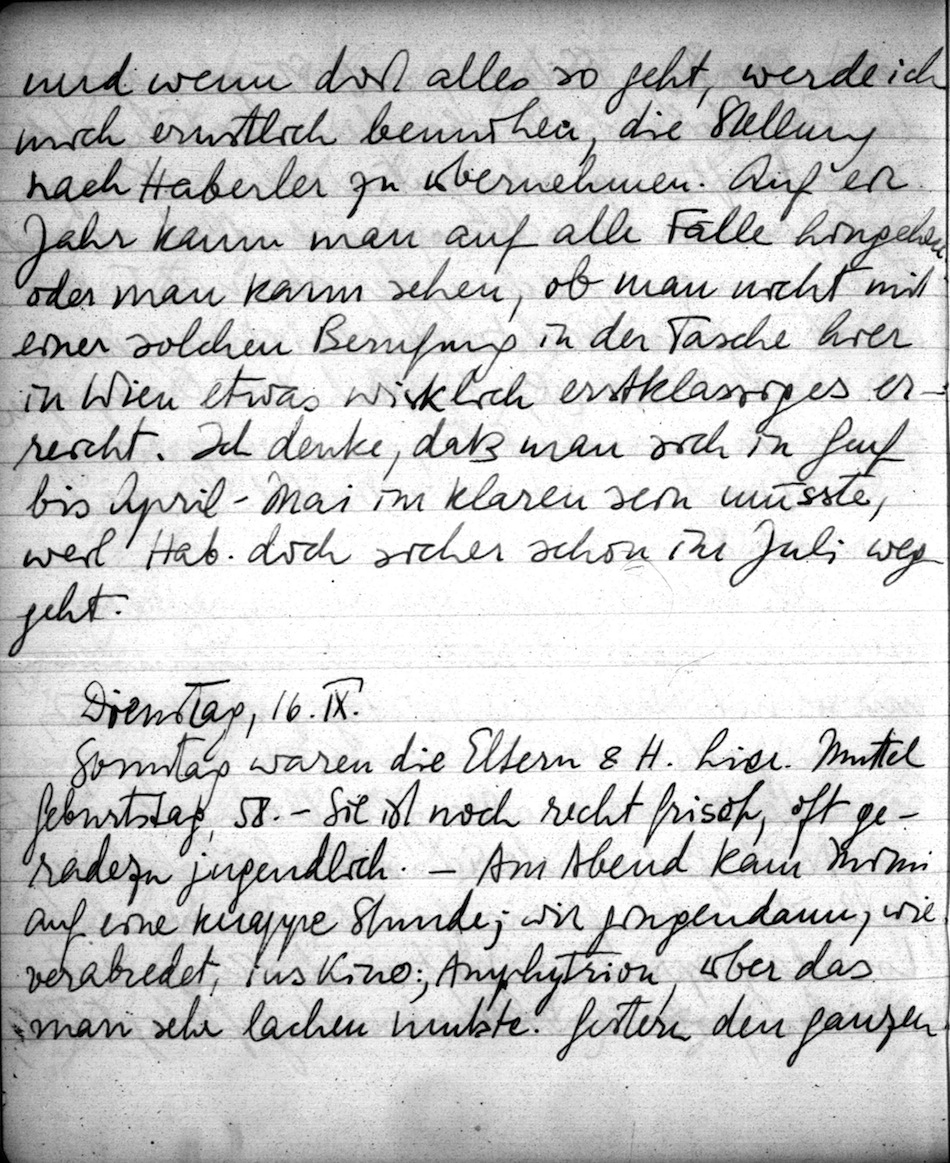 und wenn dort alles so geht, werde ich
mich ernstlich bemühen, die Stellung
nach Haberler zu übernehmen. Auf ein
Jahr kann man auf alle Fälle hingehen
oder man kann sehen, ob man nicht mit
einer solchen Berufung in der Tasche hier
in Wien etwas wirklich erstklassiges er-
reicht. Ich denke, daß man sich in Genf
bis April - Mai im klaren sein müsste,
weil Hab. doch sicher schon im Juli weg-
geht.
Dienstag, 16. IX.
Sonntag waren die Eltern & H. hier. Muttel
Geburtstag, 58. - Sie ist noch recht frisch, oft ge-
radezu jugendlich. - Am Abend kam Mimi
auf eine knappe Stunde; wir gingen dann, wie
verabredet, ins Kino; Amphytrion, über das
man sehr lachen mußte. Gestern den ganzen